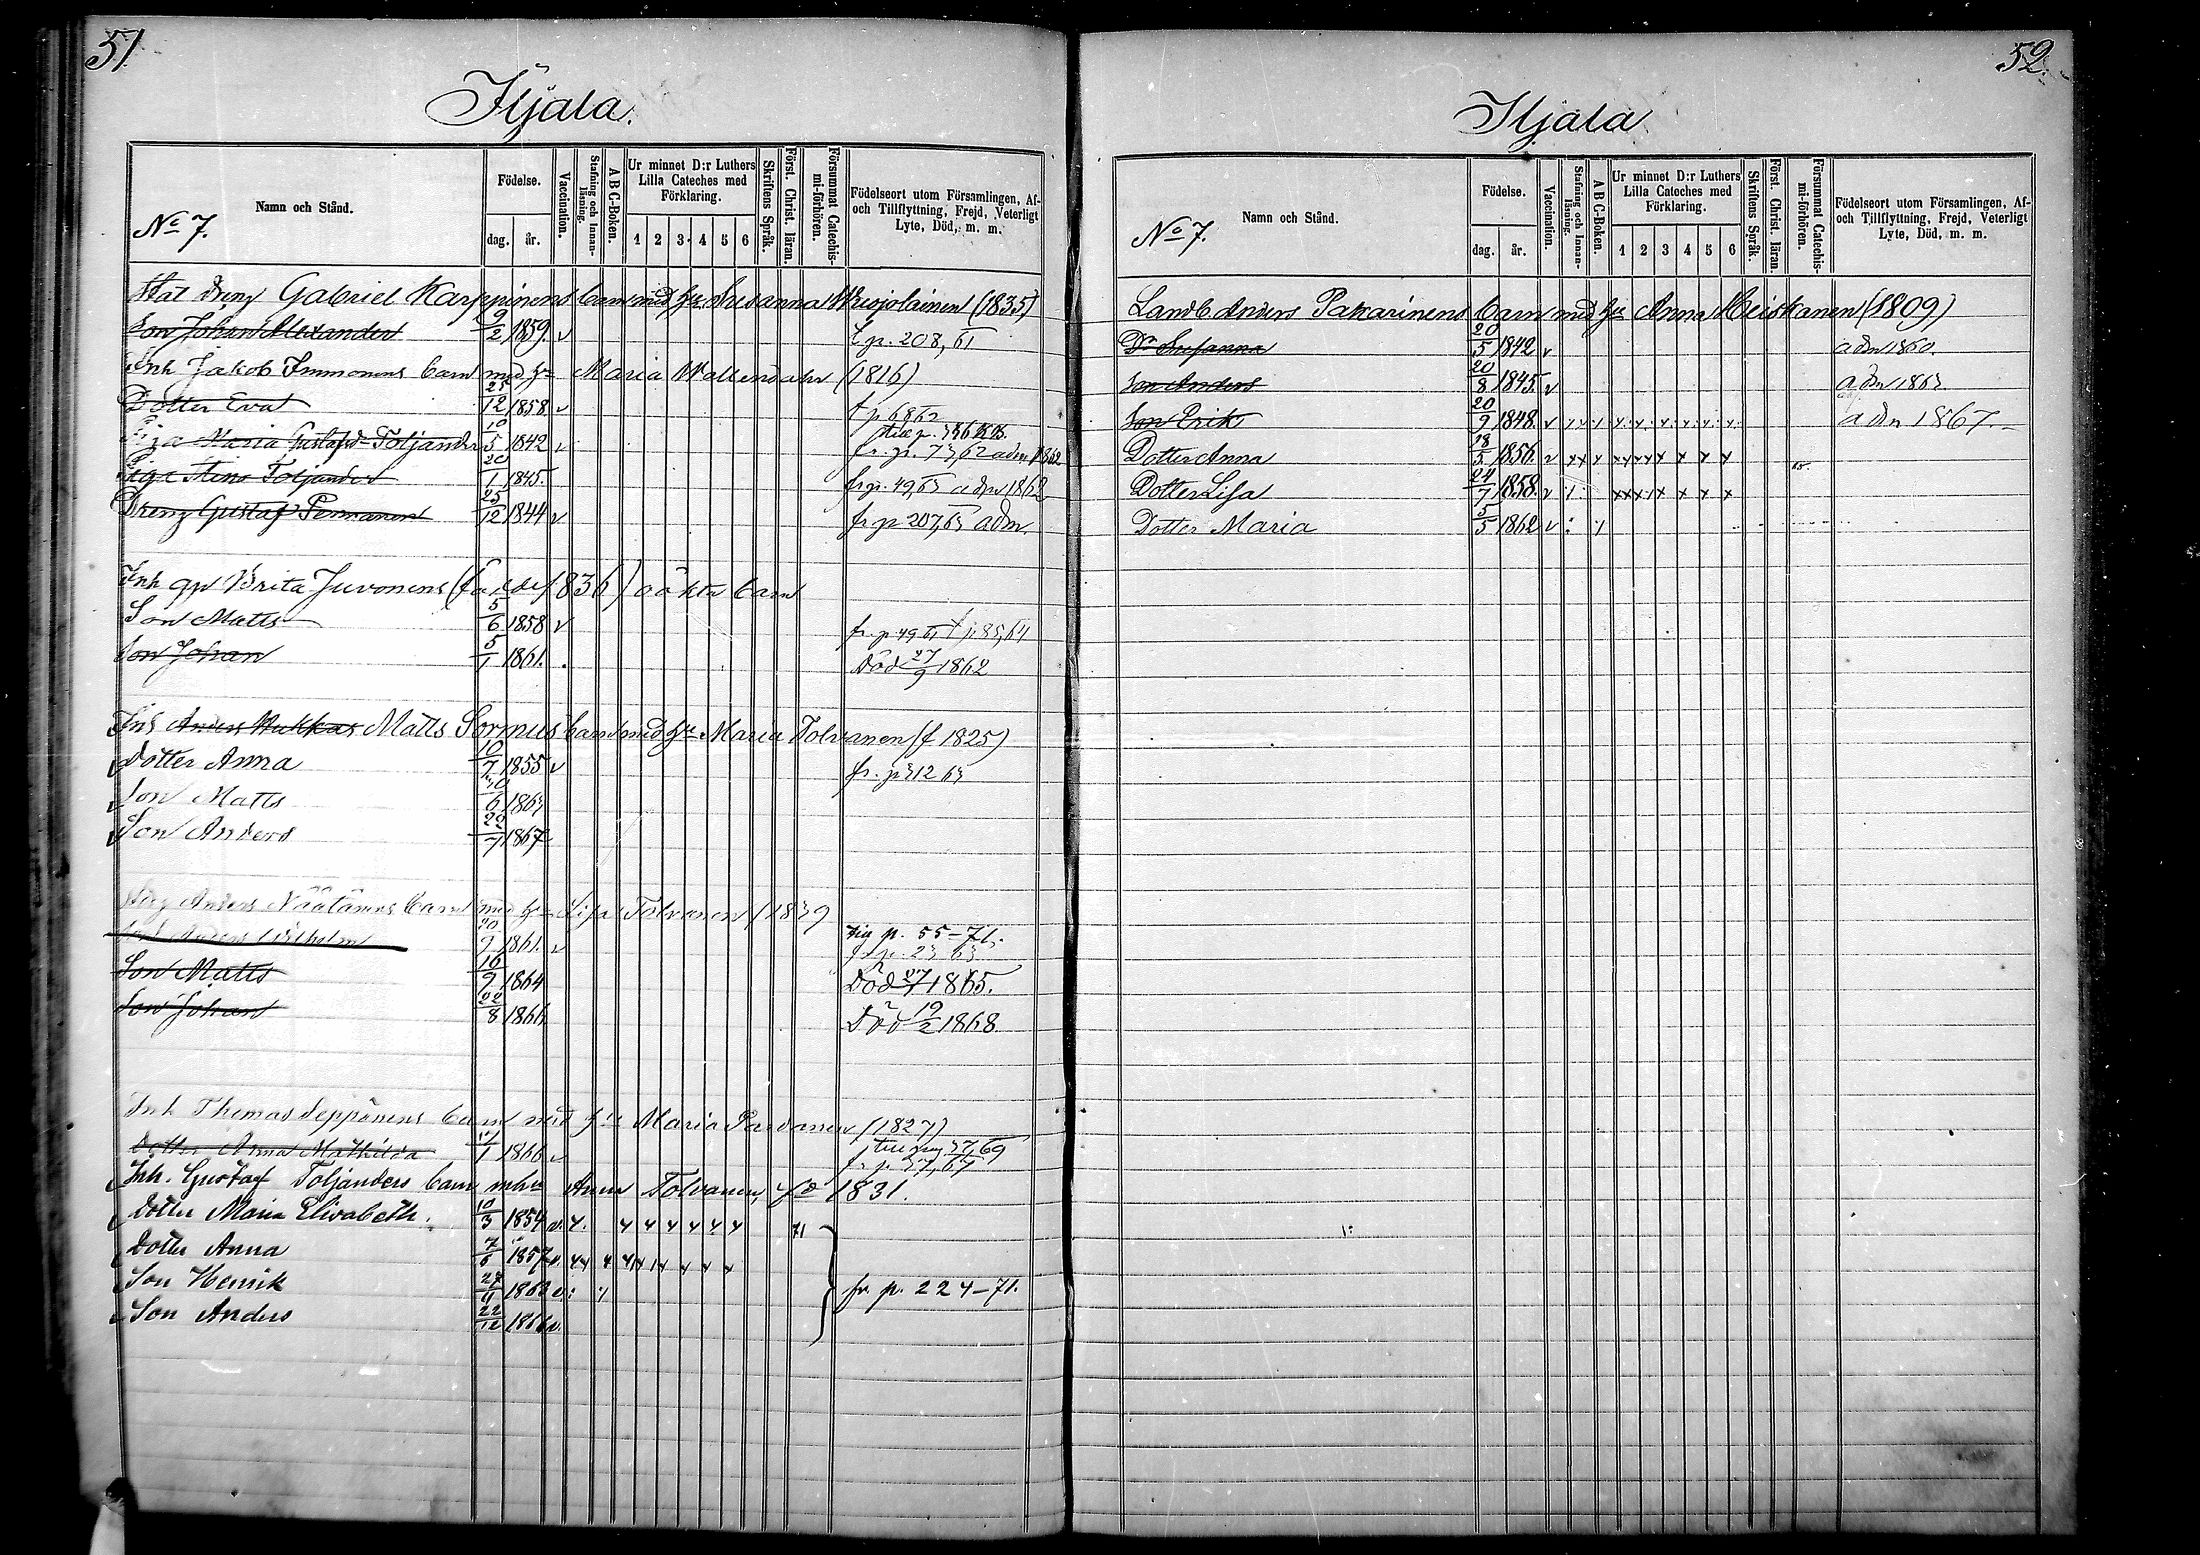 51
Iljala.
No 7.
Namn och Stånd.
Födelse.
dag. år.
Vaccination.
Stafning och Innanläsning.
A B C-Boken.
Ur minnet D:r Luthers Lilla Cateches med Förklaring.
1 2 3 4 5 6
Skriftens Språk.
Först. Christ. läran.
Försummat Catechismi-förhören.
Födelseort utom Församlingen, Af- och Tillflyttning, Frejd, Veterligt Lyte, Död, m. m.
Stat dreng Gabriel Karppinens barn med hu Susanna (1835)
Son Johan Alexander 9/2 1859 v t p. 208, 61
Inh Jakob Immonens barn med hu Maria Wallendahr (1816)
Dotter Eva 25/12 1858 v
Piga Maria Gustafsd Toljander 10/5 1842 v fr. p. 73, 62 adm 1862
Piga Stina Toljander 20/1 1845 fr p. 49, 63 adm 1862
Dreng Gustaf Permanen 25/12 1844 v fr p 207, 63 adm.
Inh qp Brita Juvonens (född 1836) oäkta barn
Son Matts 5/6 1858 v fr. p 49 61 t p. 85, 64
Son Johan 5/1 1861 Död 27/9 1862
Inh Anders Hukkas Matts Sormus barn med hu Maria Tolvanen (f 1825)
Dotter Anna 10/7 1855 v fr. p 312 63
Son Matts 6 1863
Son Anders 29/7 1867
Anders Näätänens barn med hu Lisa Tolvanen (1839
Son Anders Wilhelm 30/9 1861 v till p. 55-71.
fr p. 23 63
Son Matts 16/9 1864 Död 1865.
Son Johan 22/8 1866 Död 19/2 1868
Inh Thomas Seppänens barn med hu Maria Pardanen (1827)
Dotter Anna Mathilda 1 1866 v till pag 37, 69
fr p. 37, 67
Inh. Gustaf Toljanders barn mhu Anna Tolvanen, fd 1831.
Dotter Maria Elisabeth. 10/3 1854 v. 71
Dotter Anna 7/6 1857 v.
Son Henrik 1862 v. fr. p. 224-71.
Son Anders 22/12 1866 v.
52.
Iljala
No 7.
Namn och Stånd.
Födelse.
dag. år.
Vaccination.
Stafning och Innanläsning.
A B C-Boken.
Ur minnet D:r Luthers Lilla Cateches med Förklaring.
1 2 3 4 5 6
Skriftens Språk.
Först. Christ. läran.
Försumat Catechismi-förhören.
Födelseort utom Församlingen, Af- och Tillflyttning, Frejd, Veterligt Lyte, Död, m. m.
Landb. Anders Pakarinens barn med hu Anna Meiskanen (1809)
Dr Susanna 20/5 1842 v adm 1860.
Son Anders 20/8 1845 v adm 1863
Son Erik 20/9 1848 v adm 1867.
Dotter Anna 18/5 1856 v x x x x x x x x x x
Dotter Lisa 24/7 1858 v x x x x x x x 65.
Dotter Maria 5/5 1862 v